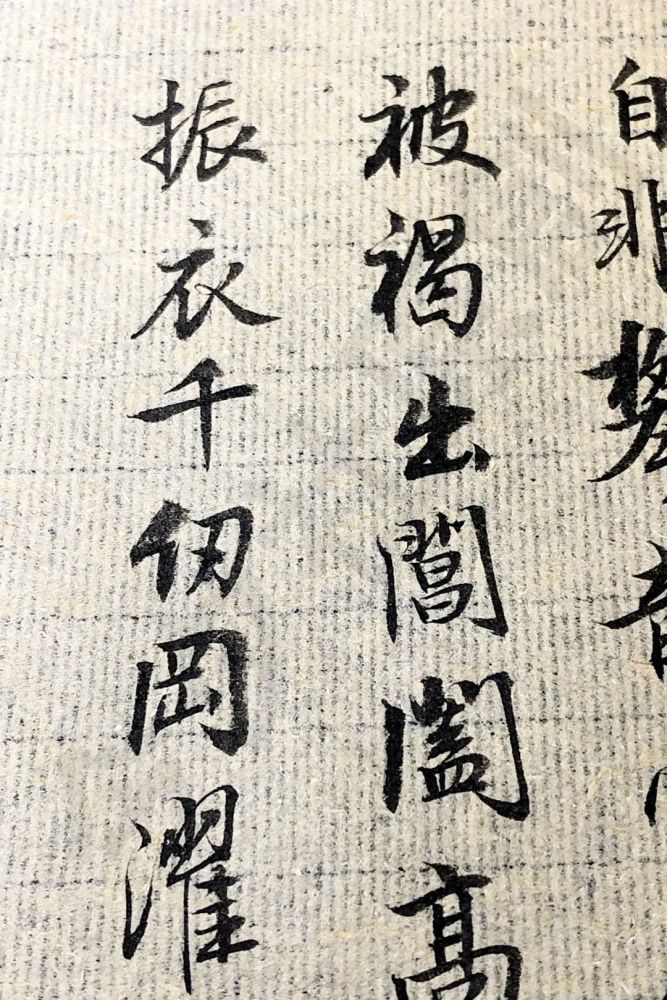 自非攀龍
被褐出閶闔高
振衣千仞岡濯